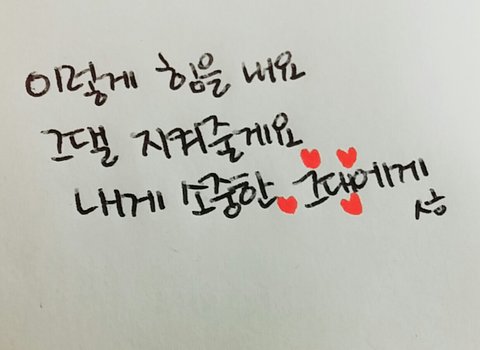 이렇게 힘을 내요
그댈 지켜줄게요
내게 소중한 그대에게